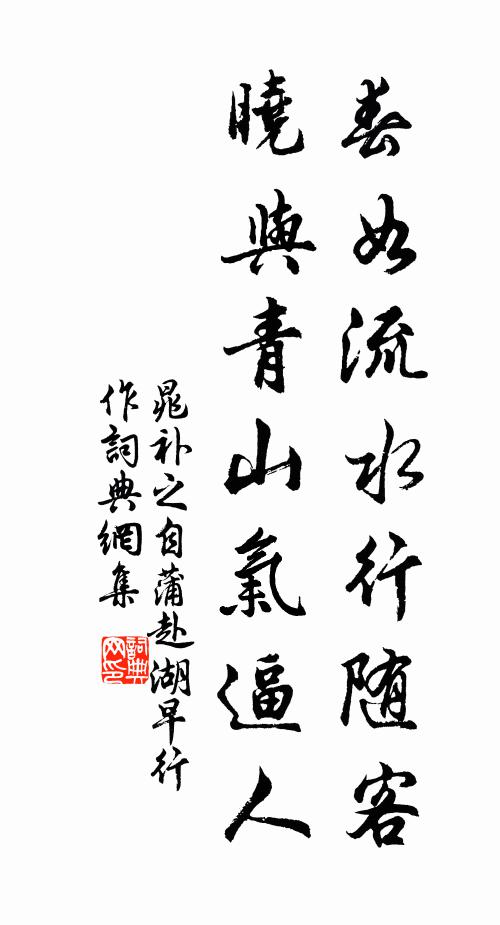 春如流水行随客
曉與青山氣逼人
晁补之自蒲赴湖早行
作詞典網集
詞典
网印